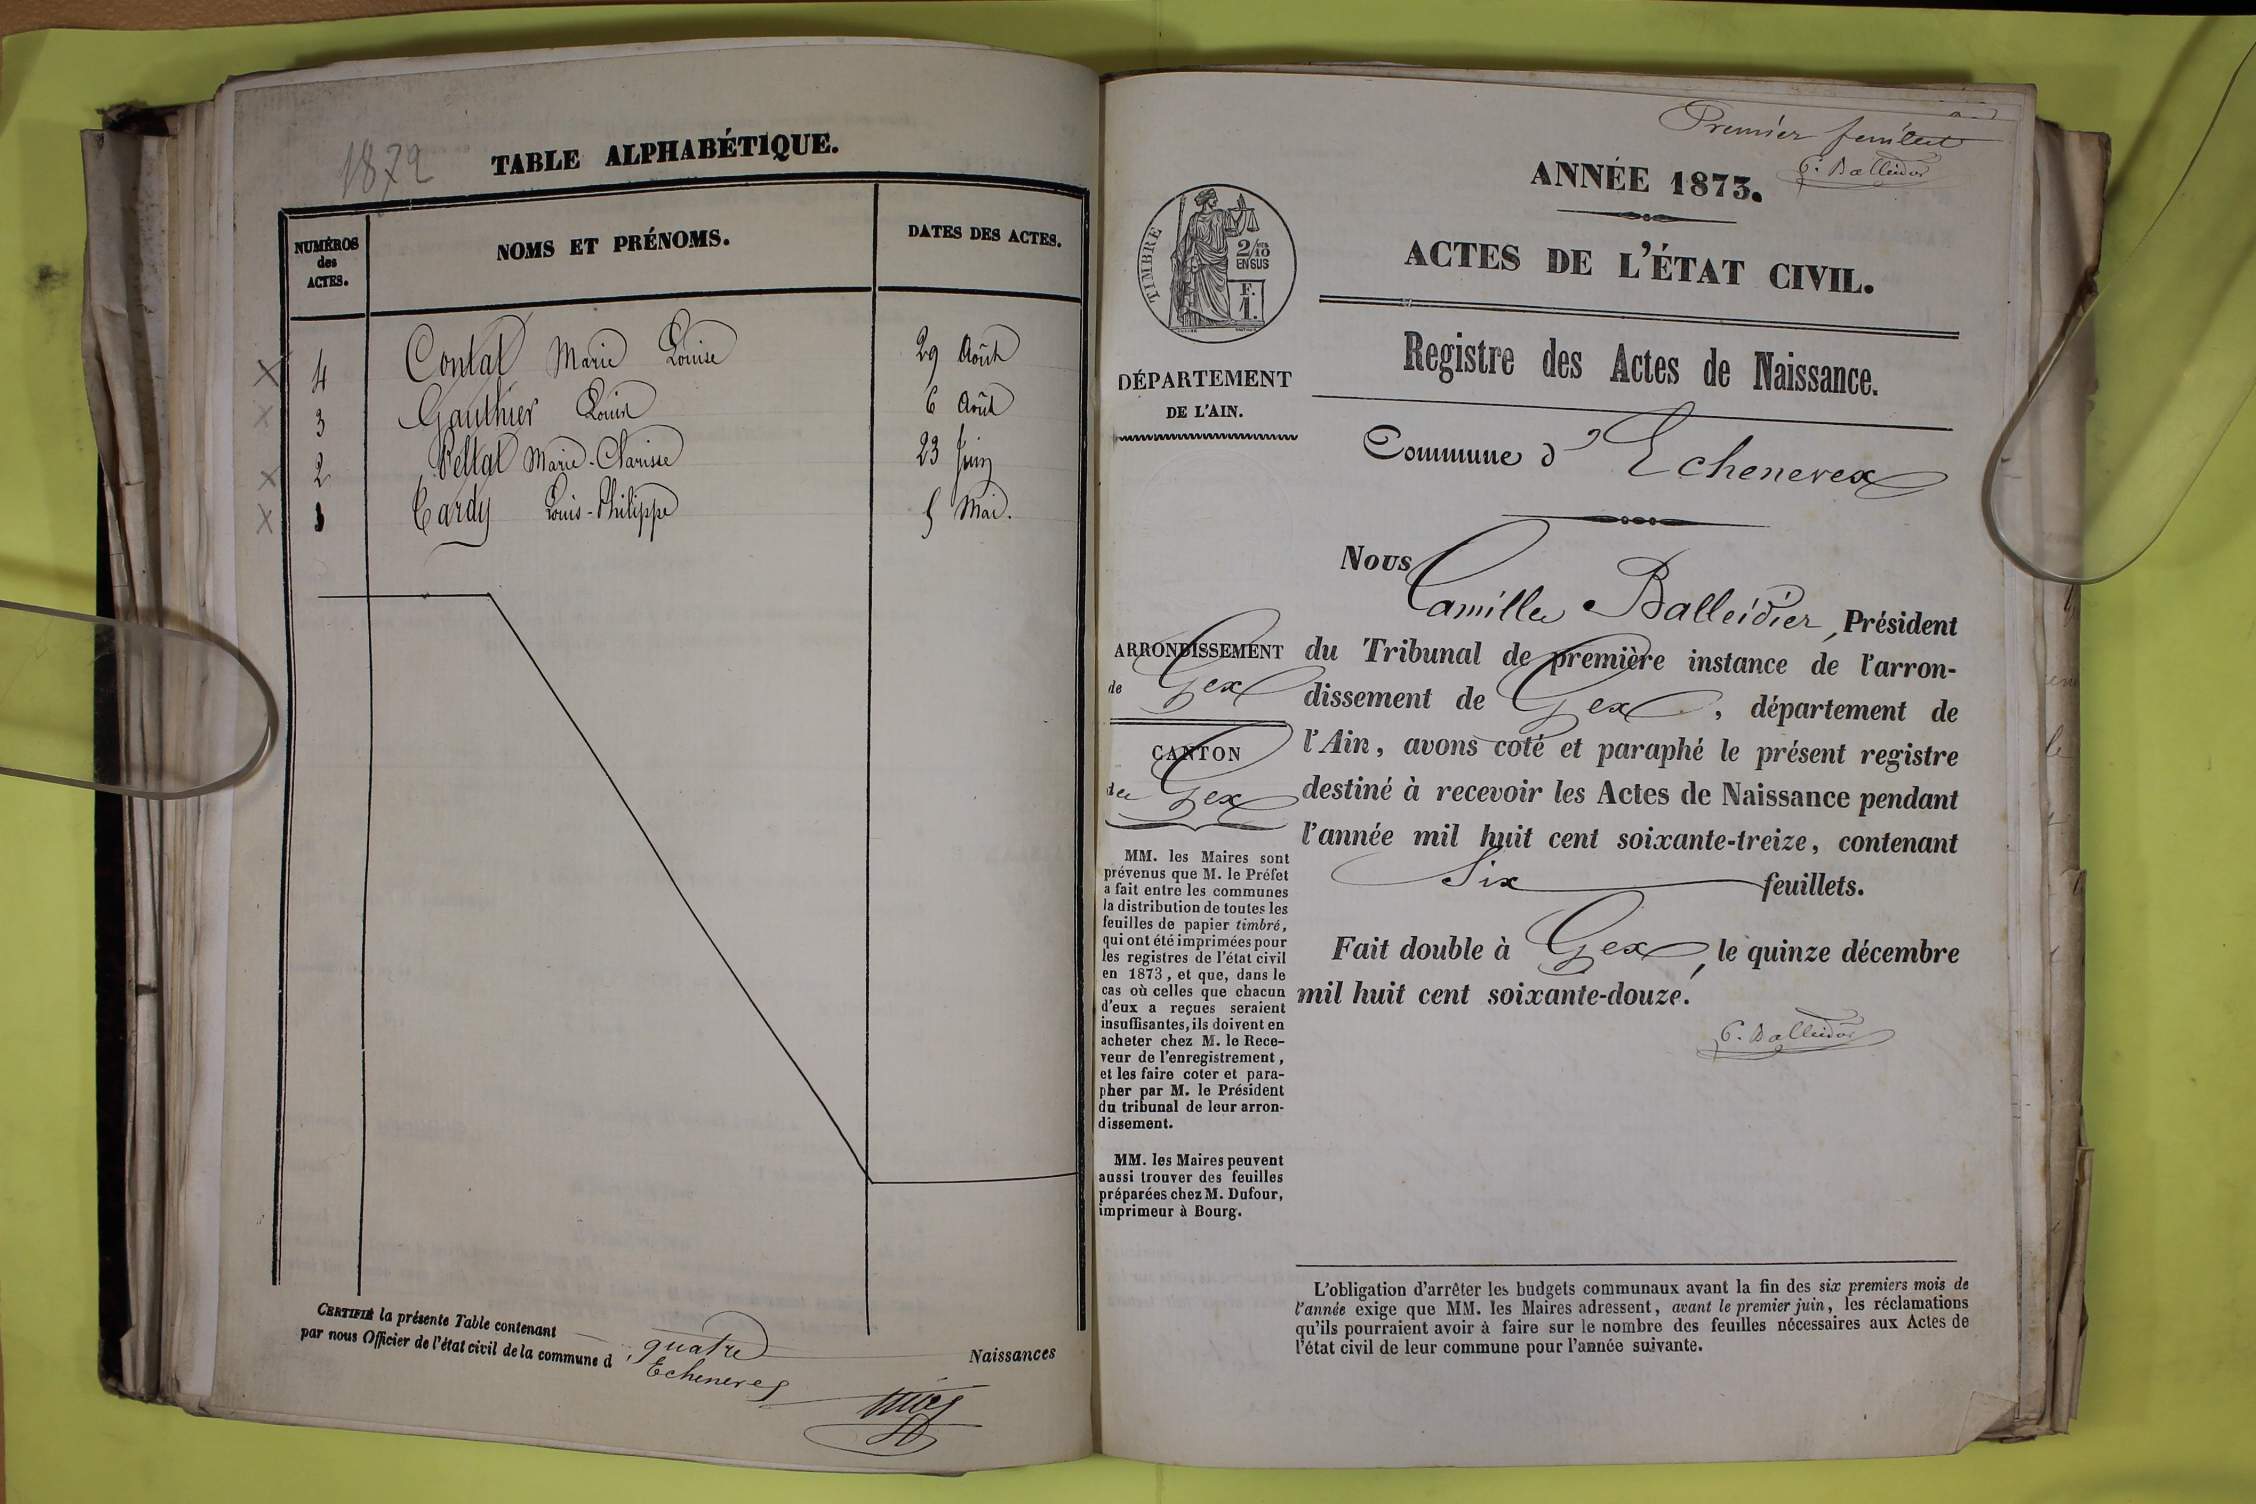 1872
TABLE ALPHABÉTIQUE.
NUMÉROS des ACTES.
NOMS ET PRÉNOMS.
DATES DES ACTES.
4 Contat Marie Louise 29 Août
3 Gauthier Louis 6 Août
2 Pellal Marie-Clarisse 23 Juin
1 Tardy Louis-Philippe 5 Mai.
CERTIFIÉ la présente Table contenant quatre Naissances
par nous Officier de l'état civil de la commune d'Echenevex
Premier feuillet
C. Balleidier
ANNÉE 1873.
ACTES DE L'ÉTAT CIVIL.
TIMBRE
2/10
EN SUS
F.
1.
Registre des Actes de Naissance.
DÉPARTEMENT
DE L'AIN.
Commune d'Echenevex
ARRONDISSEMENT
de Gex
CANTON
de Gex
MM. les Maires sont
prévenus que M. le Préfet
a fait entre les communes
la distribution de toutes les
feuilles de papier timbré,
qui ont été imprimées pour
les registres de l'état civil
en 1873, et que, dans le
cas où celles que chacun
d'eux a reçues seraient
insuffisantes, ils doivent en
acheter chez M. le Rece-
veur de l'enregistrement,
et les faire coter et para-
pher par M. le Président
du tribunal de leur arron-
dissement.
MM. les Maires peuvent
aussi trouver des feuilles
préparées chez M. Dufour,
imprimeur à Bourg.
Nous Camille Balleidier, Président
du Tribunal de première instance de l'arron-
dissement de Gex, département de
l'Ain, avons coté et paraphé le présent registre
destiné à recevoir les Actes de Naissance pendant
l'année mil huit cent soixante-treize, contenant
Six feuillets.
Fait double à Gex, le quinze décembre
mil huit cent soixante-douze.
C. Balleidier
L'obligation d'arrêter les budgets communaux avant la fin des six premiers mois de
l'année exige que MM. les Maires adressent, avant le premier juin, les réclamations
qu'ils pourraient avoir à faire sur le nombre des feuilles nécessaires aux Actes de
l'état civil de leur commune pour l'année suivante.